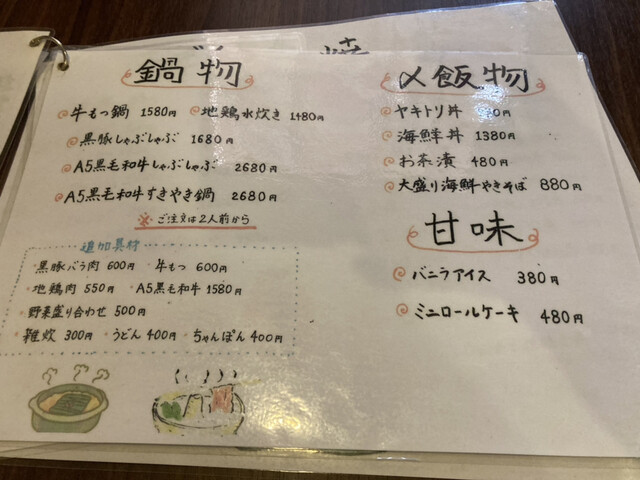 鍋物
牛もつ鍋 1580円 地鶏水炊き 1480円
黒豚しゃぶしゃぶ 1680円
A5黒毛和牛しゃぶしゃぶ 2680円
A5黒毛和牛すきやき鍋 2680円
※ご注文は2人前から
追加具材
・黒豚バラ肉 600円 ・牛もつ 600円
・地鶏肉 550円 ・A5黒毛和牛 1580円
・野菜盛り合わせ 500円
・雑炊 300円 ・うどん 400円 ・ちゃんぽん 400円
〆飯物
ヤキトリ丼 円
海鮮丼 1380円
お茶漬 480円
大盛り海鮮やきそば 880円
甘味
バニラアイス 380円
ミニロールケーキ 480円